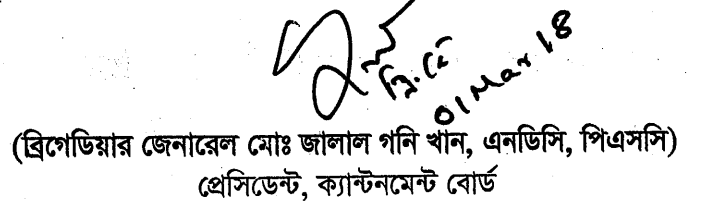 ব্রি. জে
01 Mar 18
(ব্রিগেডিয়ার জেনারেল মোঃ জালাল গনি খান, এনডিসি, পিএসসি)
প্রেসিডেন্ট, ক্যান্টনমেন্ট বোর্ড